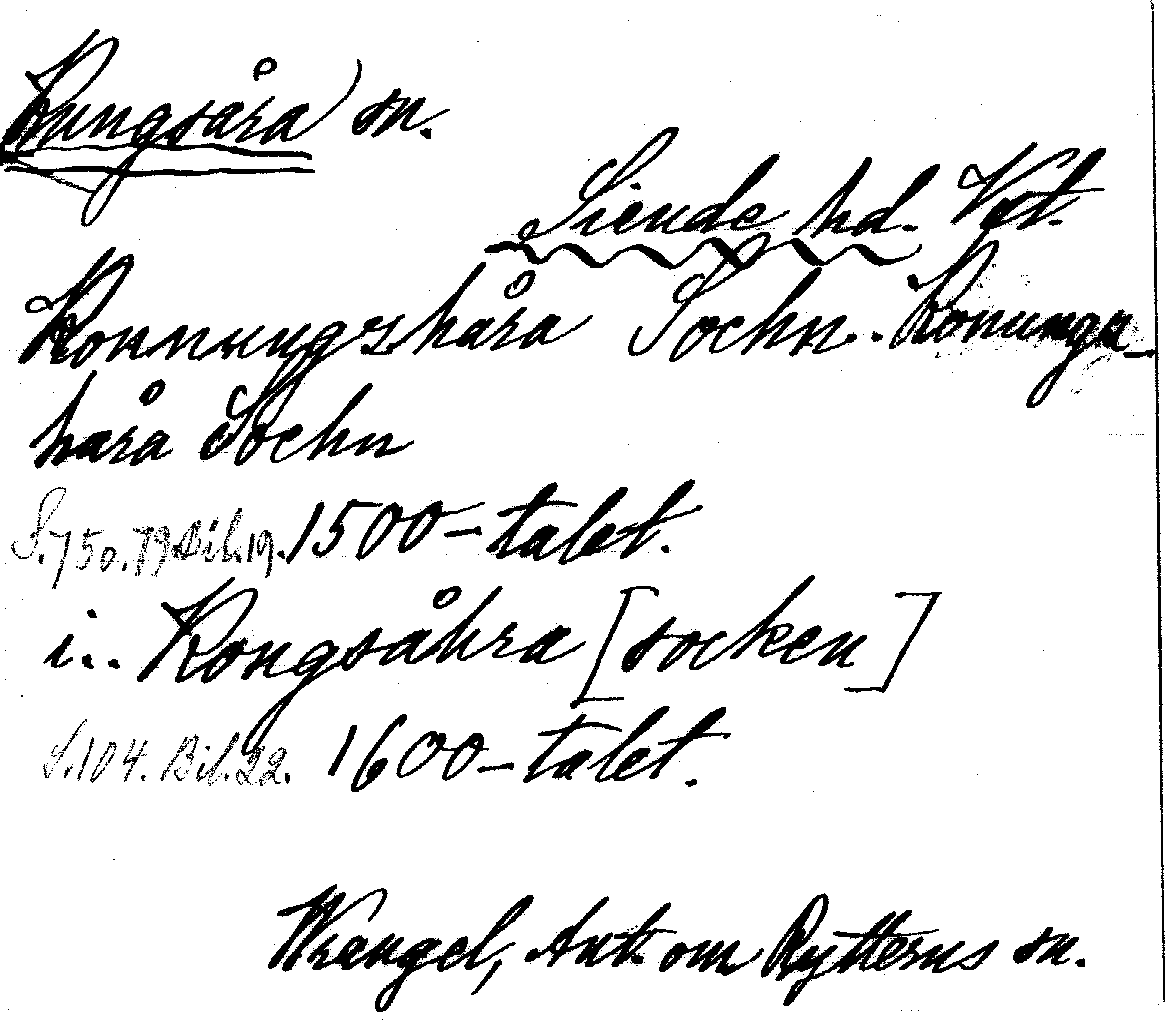 Kungsåra) sn.
Siende hd. Vst.
Konnungzhåra Sochn.. Konunga-
håra Sochn
S. 750. 79 Bil. 19. 1500-talet.
i.. Kongsåhra [socken]
S. 104. Bil. 22. 1600-talet.
Wrangel, Ant. om Rytterns sn.